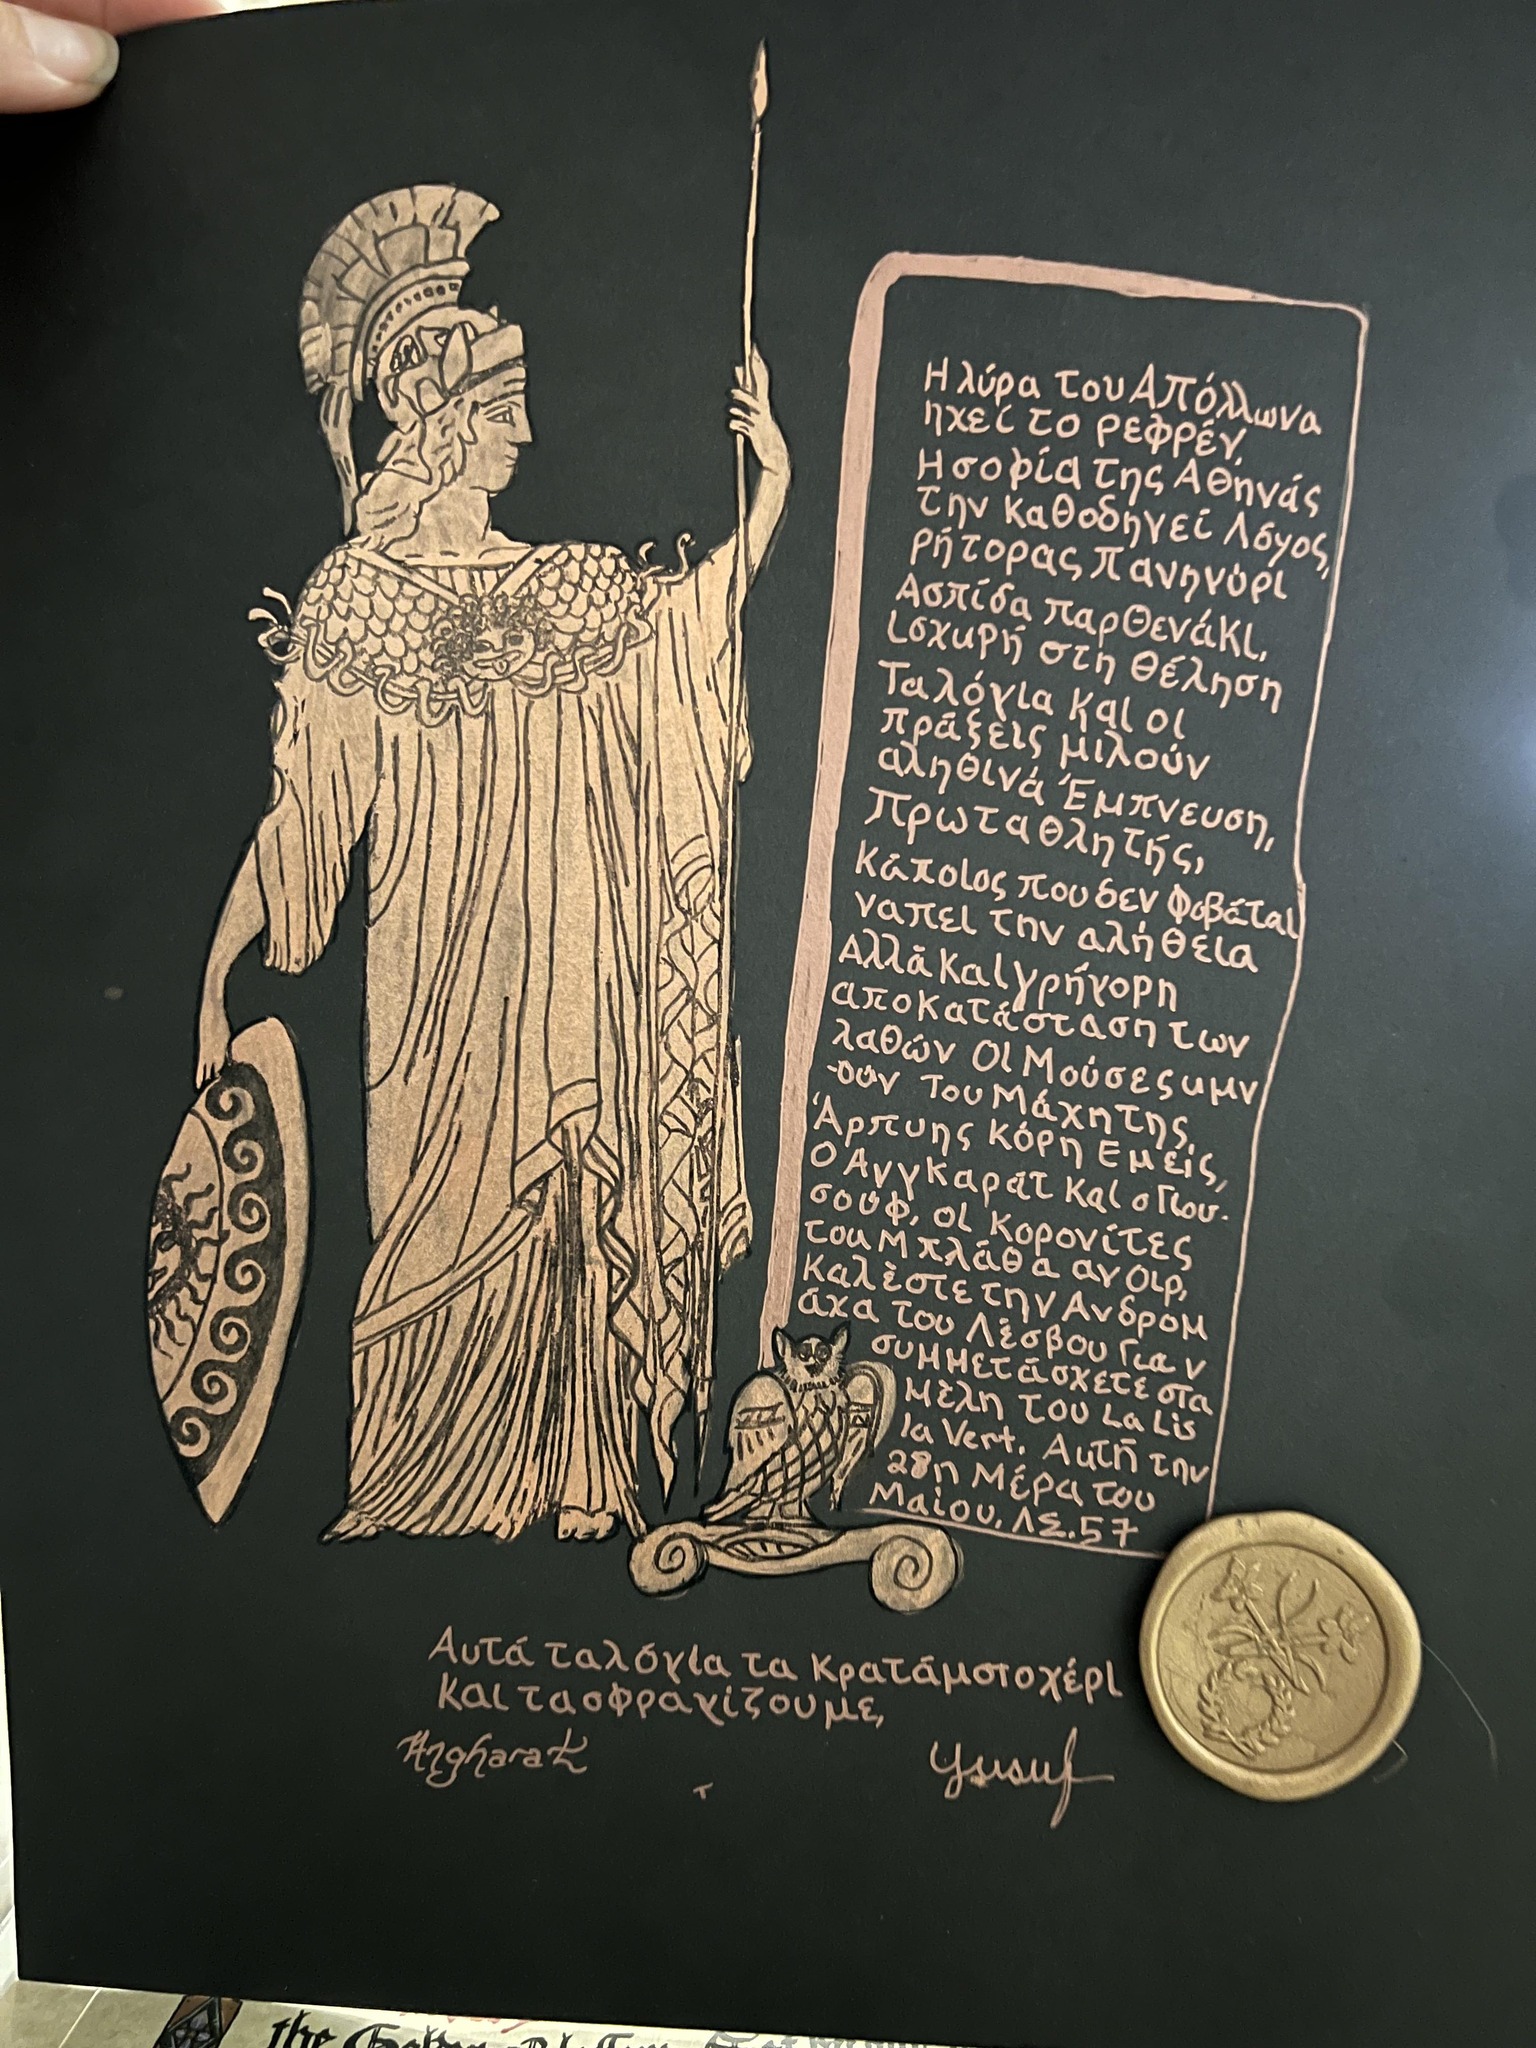 Η λύρα του Απόλλωνα
ηχεί το ρεφρέν,
Η σοφία της Αθηνάς
την καθοδηγεί Λόγος,
ρήτορας πανηγύρι
Ασπίδα παρθενάκι,
ισχυρή στη θέληση
Τα λόγια και οι
πράξεις μιλούν
αληθινά Έμπνευση,
Πρωταθλητής,
Κάποιος που δεν φοβάται
να πει την αλήθεια
Αλλά και γρήγορη
αποκατάσταση των
λαθών Οι Μούσες υμν
-ούν του Μάχητης,
Άρπυης κόρη Εμείς,
Ο Ανγκαράτ και ο Γιου-
σούφ, οι κορονίτες
του Μπλάθα αν Οιρ,
Καλέστε την Ανδρομ
άχα του Λέσβου Για ν
συμμετάσχετε στα
μέλη του La Lis
la Vert. Αυτή την
28η Μέρα του
Μαίου. ΛΣ. 57
Αυτά τα λόγια τα κρατάμστοχέρι
και τα σφραγίζουμε,
Angharat Yusuf
the Golden